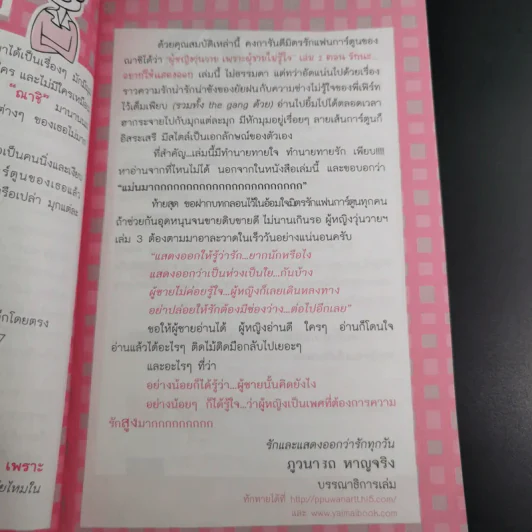 าได้เป็นเรื่องๆ มักมี
คร และไม่มีใครเหมือน
"ณาซิ" มานานน
ต่างๆ ของเธอไม่มา
เป็นคนนิ่งและเงียบ
ร์ตูนของเธอแล้ว
รือเปล่า มุกแต่ละ
ึกโดยตรง
7
เพราะ
ด้วยคุณสมบัติเหล่านี้ คงการันตีมิตรรักแฟนการ์ตูนของ
ณาซิได้ว่า "ผู้หญิงวุ่นวาย เพราะผู้ชายไม่รู้ใจ" เล่ม 2 ตอน รักนะ...
อยากให้แสดงออก เล่มนี้ ไม่ธรรมดา แต่ทว่าอัดแน่นไปด้วยเรื่อง
ราวความรักน่ารักน่าชังของยัยฝนกับความช่างไม่รู้ใจของพี่เพิร์ท
ไว้เต็มเพียบ (รวมทั้ง the gang ด้วย) อ่านไปยิ้มไปได้ตลอดเวลา
ฮากระจายไปกับมุกแต่ละมุก มีหักมุมอยู่เรื่อยๆ ลายเส้นการ์ตูนก็
อิสระเสรี มีสไตล์เป็นเอกลักษณ์ของตัวเอง
ที่สำคัญ...เล่มนี้มีทำนายทายใจ ทำนายทายรัก เพียบ!!!!
หาอ่านจากที่ไหนไม่ได้ นอกจากในหนังสือเล่มนี้ และขอบอกว่า
"แม่นมากกกกกกกกกกกกกกกกกกกกกกกกกก"
ท้ายสุด ขอฝากบทกลอนไว้ในอ้อมใจมิตรรักแฟนการ์ตูนทุกคน
ถ้าช่วยกันอุดหนุนจนขายดิบขายดี ไม่นานเกินรอ ผู้หญิงวุ่นวายฯ
เล่ม 3 ต้องตามมาอาละวาดในเร็ววันอย่างแน่นอนครับ
"แสดงออกให้รู้ว่ารัก...ยากนักหรือไง
แสดงออกว่าเป็นห่วงเป็นใย...กันบ้าง
ผู้ชายไม่ค่อยรู้ใจ...ผู้หญิงก็เลยเดินหลงทาง
อย่าปล่อยให้รักต้องมีช่องว่าง...ต่อไปอีกเลย"
ขอให้ผู้ชายอ่านได้ ผู้หญิงอ่านดี ใครๆ อ่านก็โดนใจ
อ่านแล้วได้อะไรๆ ติดไม้ติดมือกลับไปเยอะๆ
และอะไรๆ ที่ว่า
อย่างน้อยก็ได้รู้ว่า...ผู้ชายนั้นคิดยังไง
อย่างน้อยๆ ก็ได้รู้ใจ...ว่าผู้หญิงเป็นเพศที่ต้องการความ
รักสูงมากกกกกกกกก
รักและแสดงออกว่ารักทุกวัน
ภูวนารถ หาญจริง
บรรณาธิการเล่ม
ทักทายได้ที่ http://ppuwanart.hi5.com/
และ www.yaimaibook.com